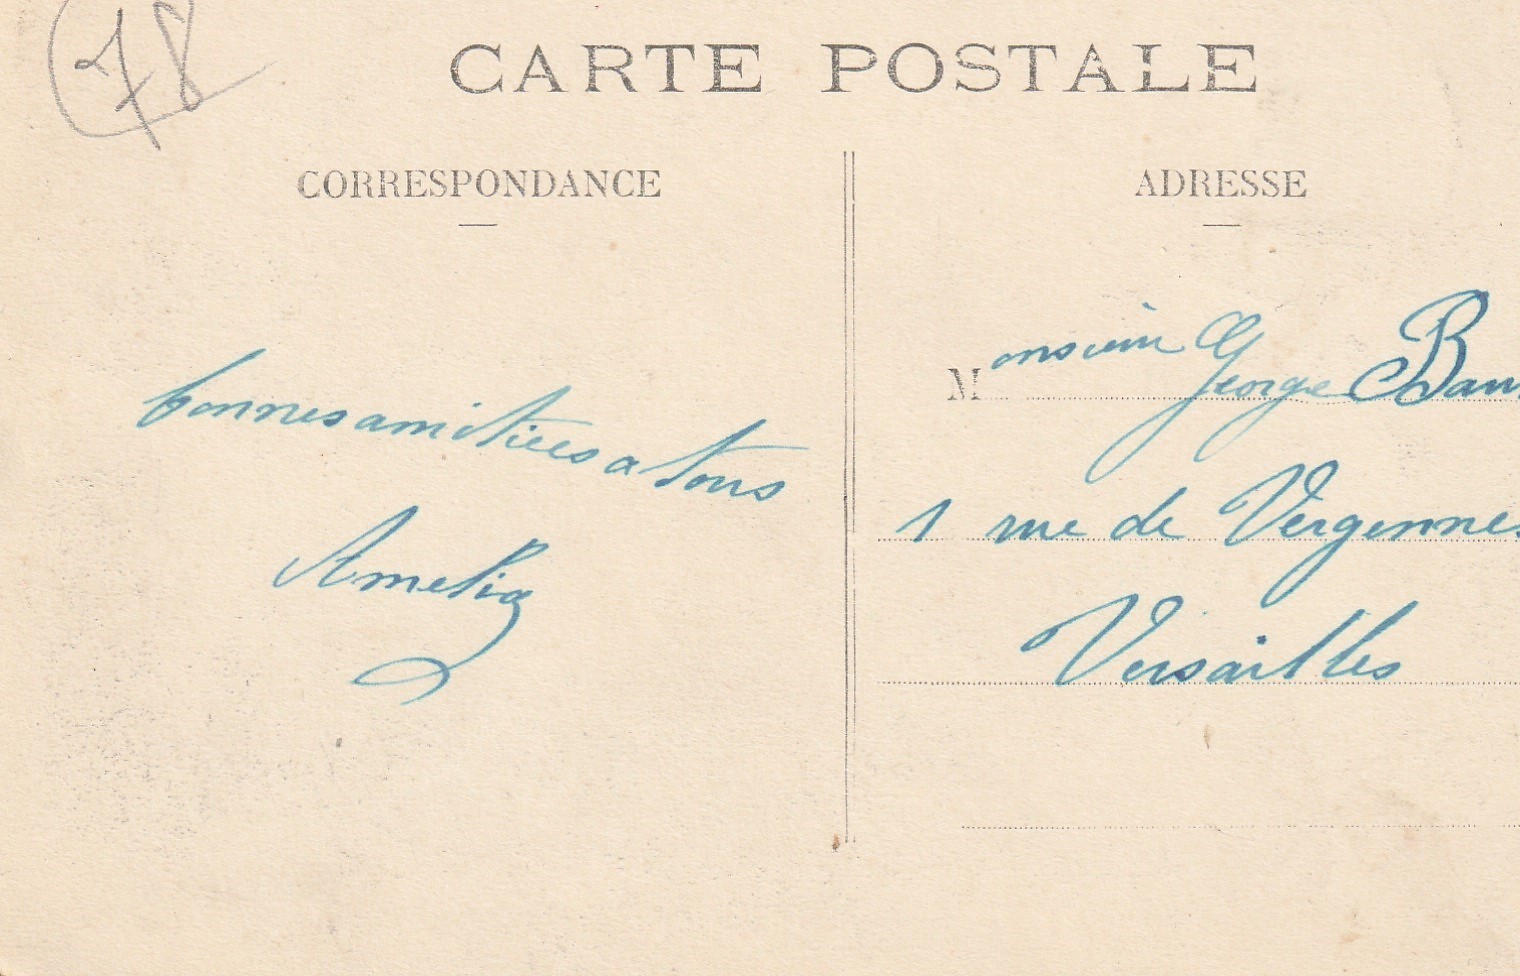 78
CARTE POSTALE
CORRESPONDANCE
ADRESSE
bonnes amitiees a tous
Amelia
Monsieur George
1 rue de Vergennes
Versailles